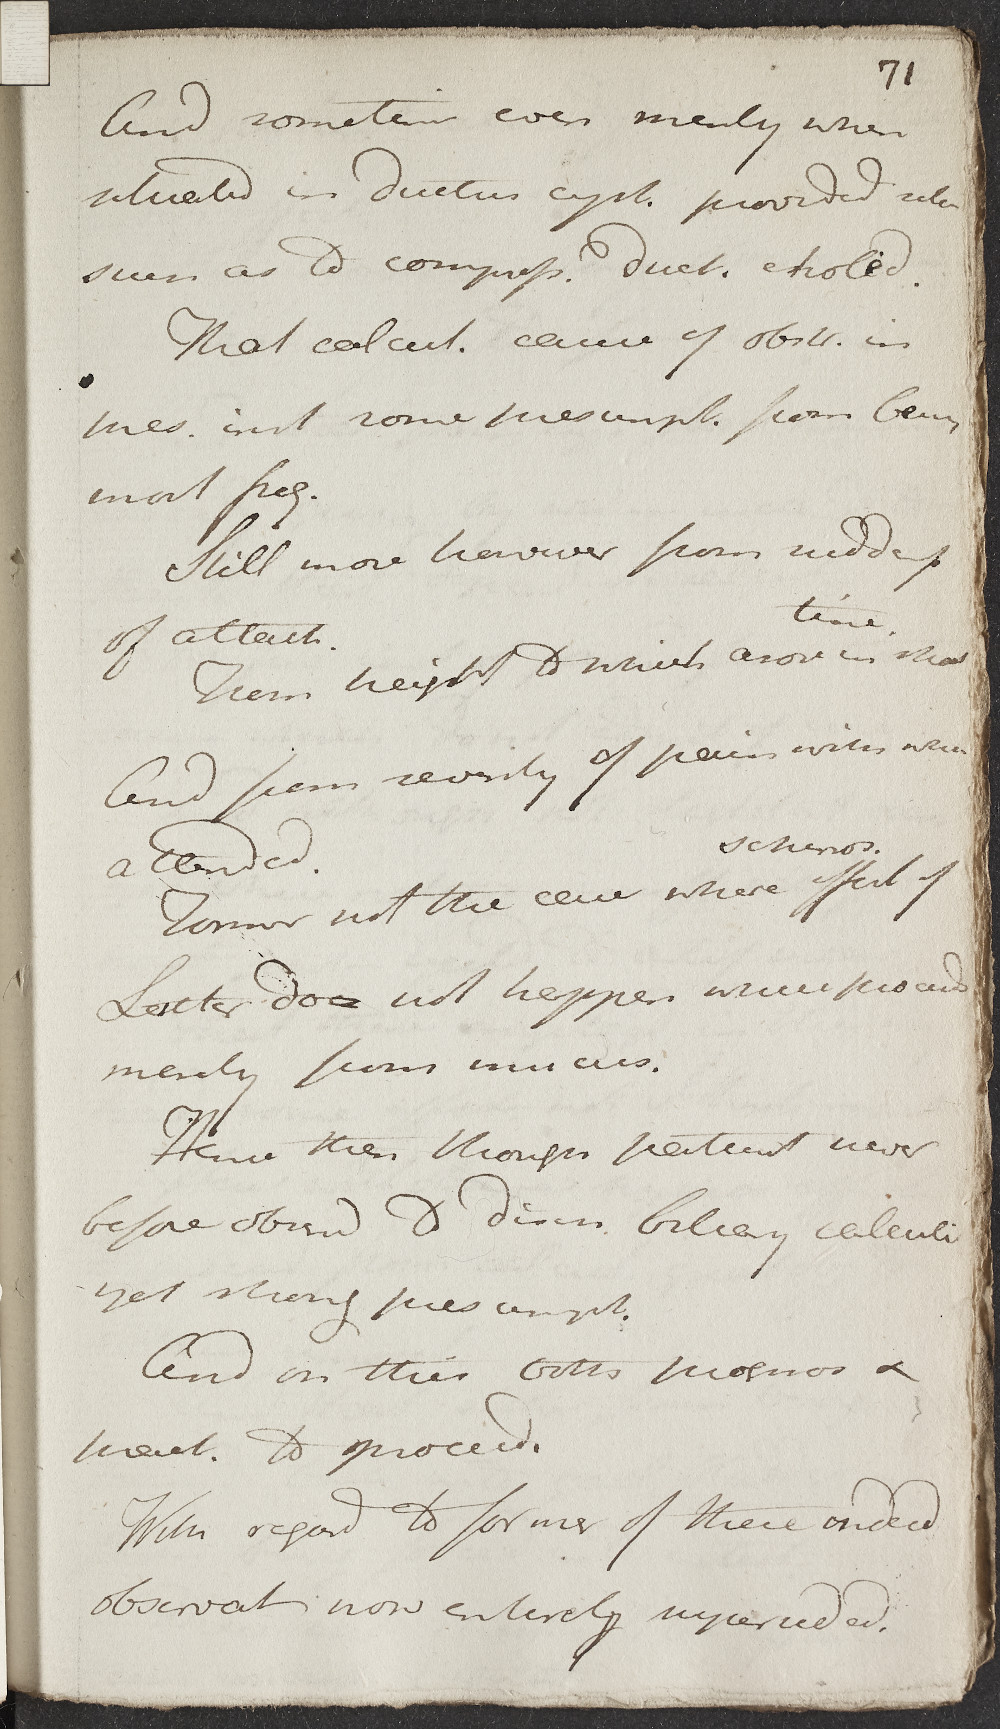 71
And sometim even merely when
situated in Ductus cyst. provided situ
such as to compress. Duct. choled.
That calcul. cause of obstr. in
pres. inst some presumpt. from being
most freq.
Still more however from suddeness
of attack.
From height to which arose in short
time.
And from severity of pain with which
attended.
Former not the case where effect of
schirros.
Latter does not happen where proceeds
merely from mucus.
Hence then though patient never
before observd to disch. biliary calculi
yet strong presumpt.
And on this both prognos &
treat. to proceed.
With regard to former of these indeed
observat now entirely superseded.